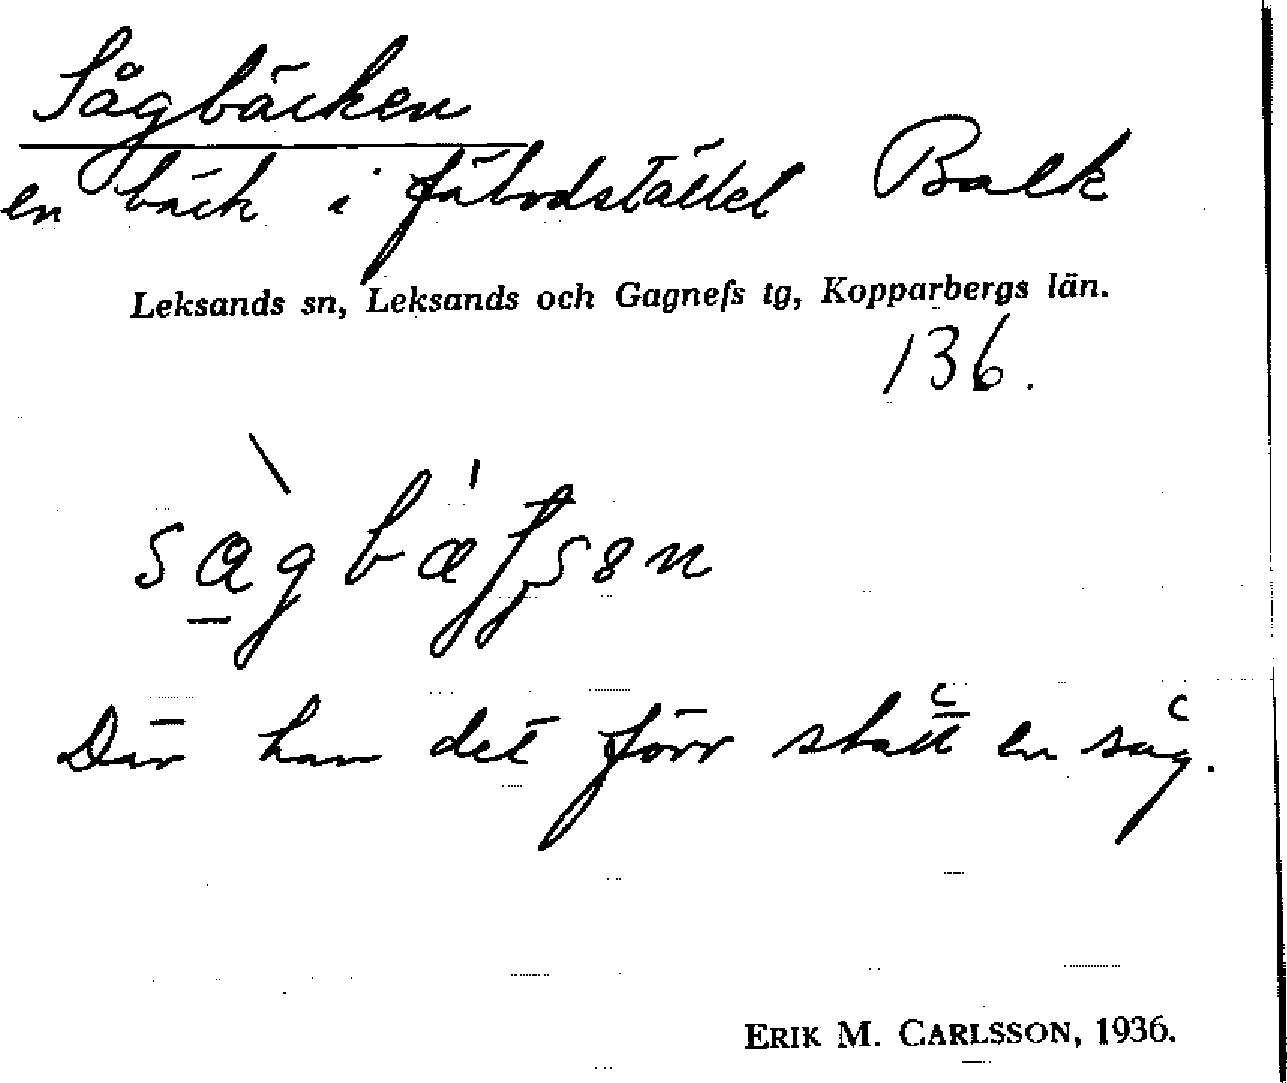 Sågbäcken
en bäck i fäbodstället Balk
Leksands sn, Leksands och Gagnefs tg, Kopparbergs län.
136.
Där har det förr stått en såg.
ERIK M. CARLSSON, 1936.